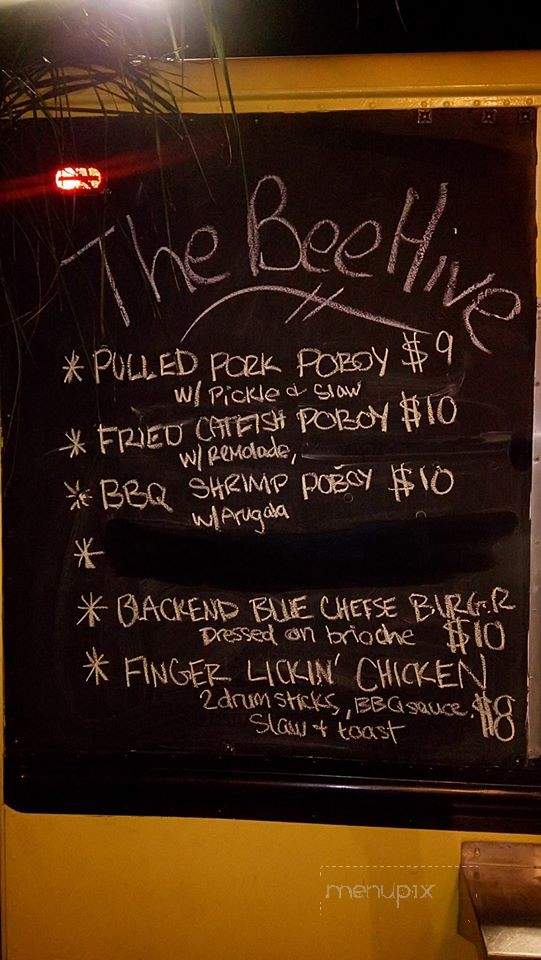 The BeeHive
* PULLED PORK POBOY $9
w/ Pickle & Slaw
* FRIED CATFISH POBOY $10
w/ Remolade,
* BBQ SHRIMP POBOY $10
w/Arugala
*
* BLACKEND BLUE CHEESE BURGR
Dressed on brioche $10
* FINGER LICKIN' CHICKEN
2 drumsticks, BBQ sauce, $8
Slaw + toast
menupix